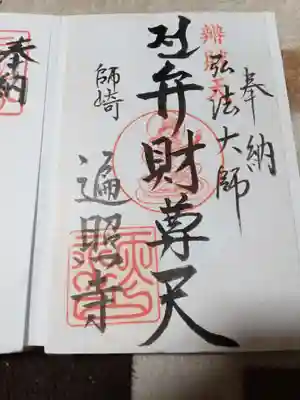 奉納
弘法大師
弁財尊天
師崎
遍照寺
奉納